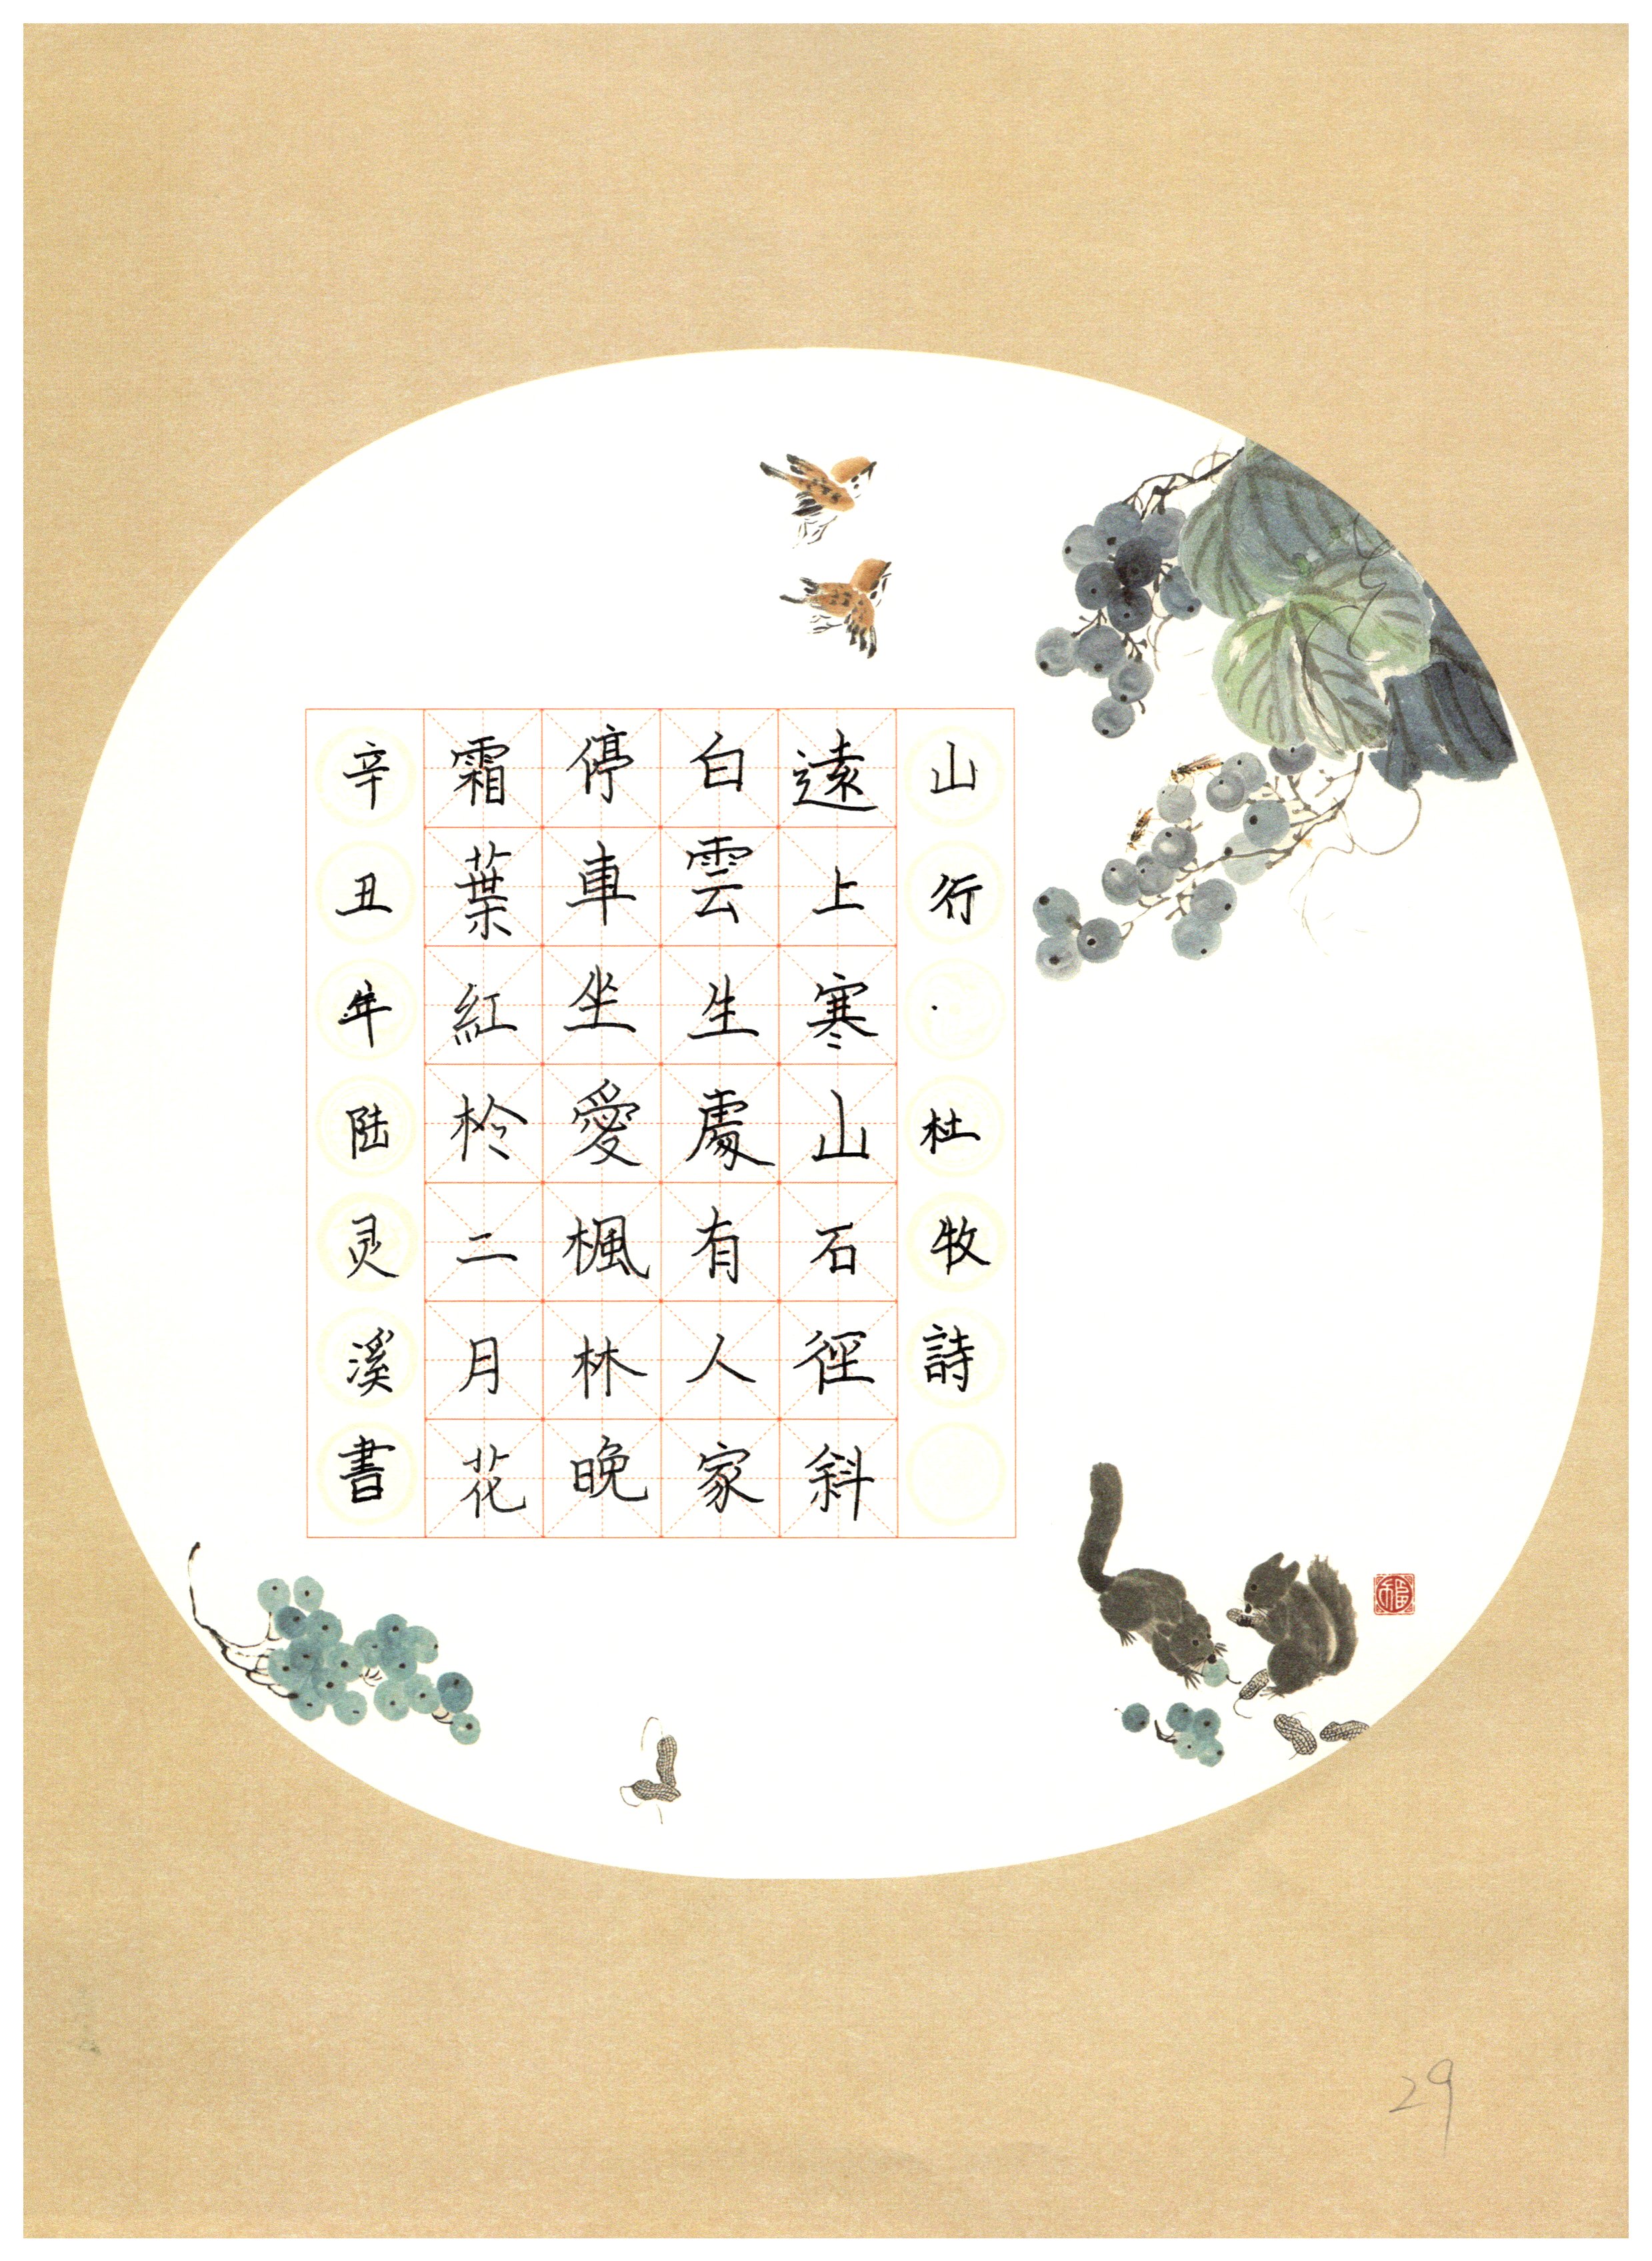 山行·杜牧詩
遠上寒山石徑斜
白雲生處有人家
停車坐愛楓林晚
霜葉紅扵二月花
辛丑年陆灵溪書
福
29